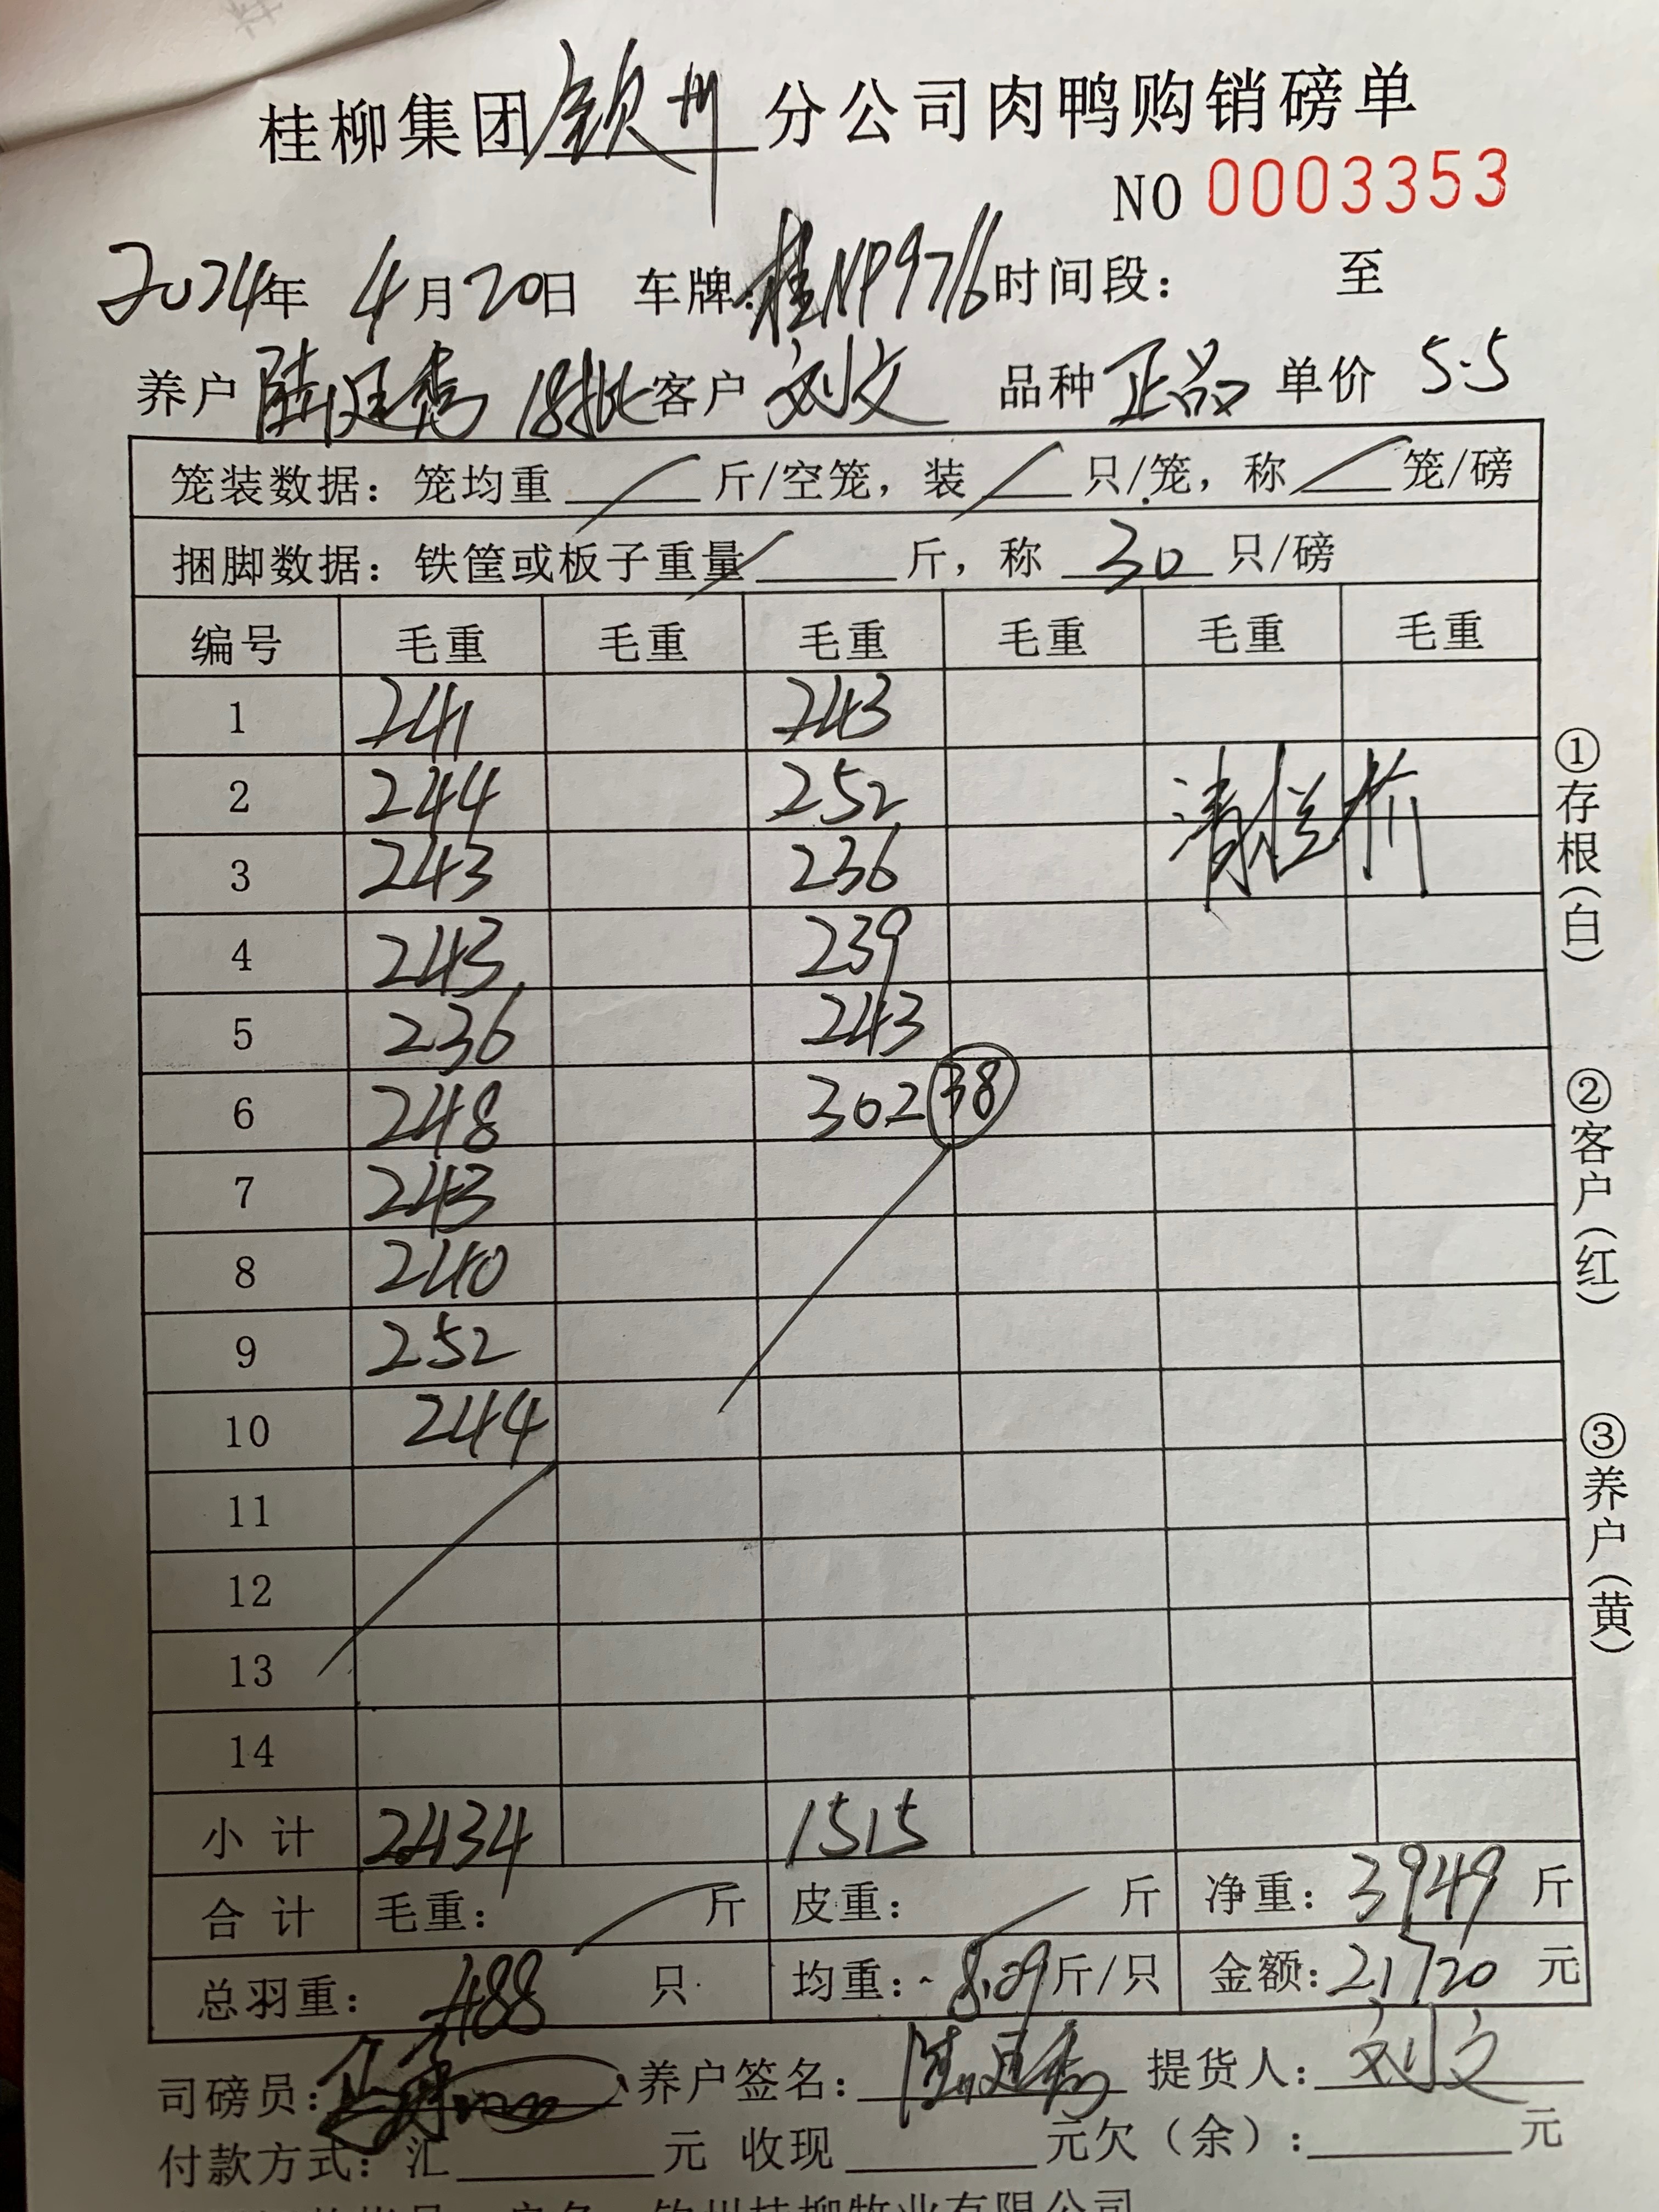 桂柳集团钦州分公司肉鸭购销磅单
NO 0003353
2024年 4月20日 车牌:桂NP9716时间段: 至
养户 18批 客户 刘文 品种 正品 单价 5.5
笼装数据:笼均重 / 斤/空笼,装 / 只/笼,称 / 笼/磅
捆脚数据:铁筐或板子重量 / 斤,称 30 只/磅
编号 毛重 毛重 毛重 毛重 毛重 毛重
1 241 243
2 244 252
3 243 236
4 243 239
5 236 243
6 248 302 38
7 243
8 240
9 252
10 244
11
12
13
14
小计 2434 1515
合计 毛重: / 斤 皮重: / 斤 净重:3949 斤
总羽重: 488 只 均重: 8.09斤/只 金额:21720 元
司磅员: 养户签名: 提货人:刘文
付款方式:汇 元 收现 元欠(余): 元
钦州桂柳牧业有限公司
①存根(白)
②客户(红)
③养户(黄)